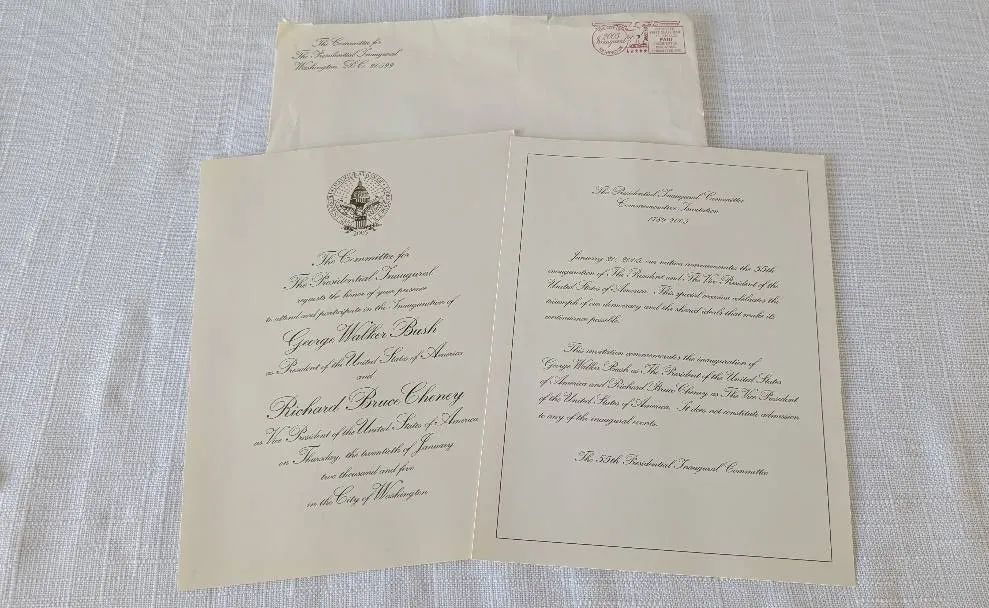 The Committee for
The Presidential Inaugural
Washington, D.C. 20599
2005
Inaugural
FIRST CLASS MAIL
PAID
2005
The Committee for
The Presidential Inaugural
requests the honor of your presence
to attend and participate in the Inauguration of
George Walker Bush
as President of the United States of America
and
Richard Bruce Cheney
as Vice President of the United States of America
on Thursday, the twentieth of January
two thousand and five
in the City of Washington
The Presidential Inaugural Committee
Commemorative Invitation
1789-2005
January 20, 2005, our nation commemorates the 55th
inauguration of The President and The Vice President of the
United States of America. This special occasion celebrates the
triumph of our democracy and the shared ideals that make its
continuance possible.
This invitation commemorates the inauguration of
George Walker Bush as The President of the United States
of America and Richard Bruce Cheney as The Vice President
of the United States of America. It does not constitute admission
to any of the inaugural events.
The 55th Presidential Inaugural Committee